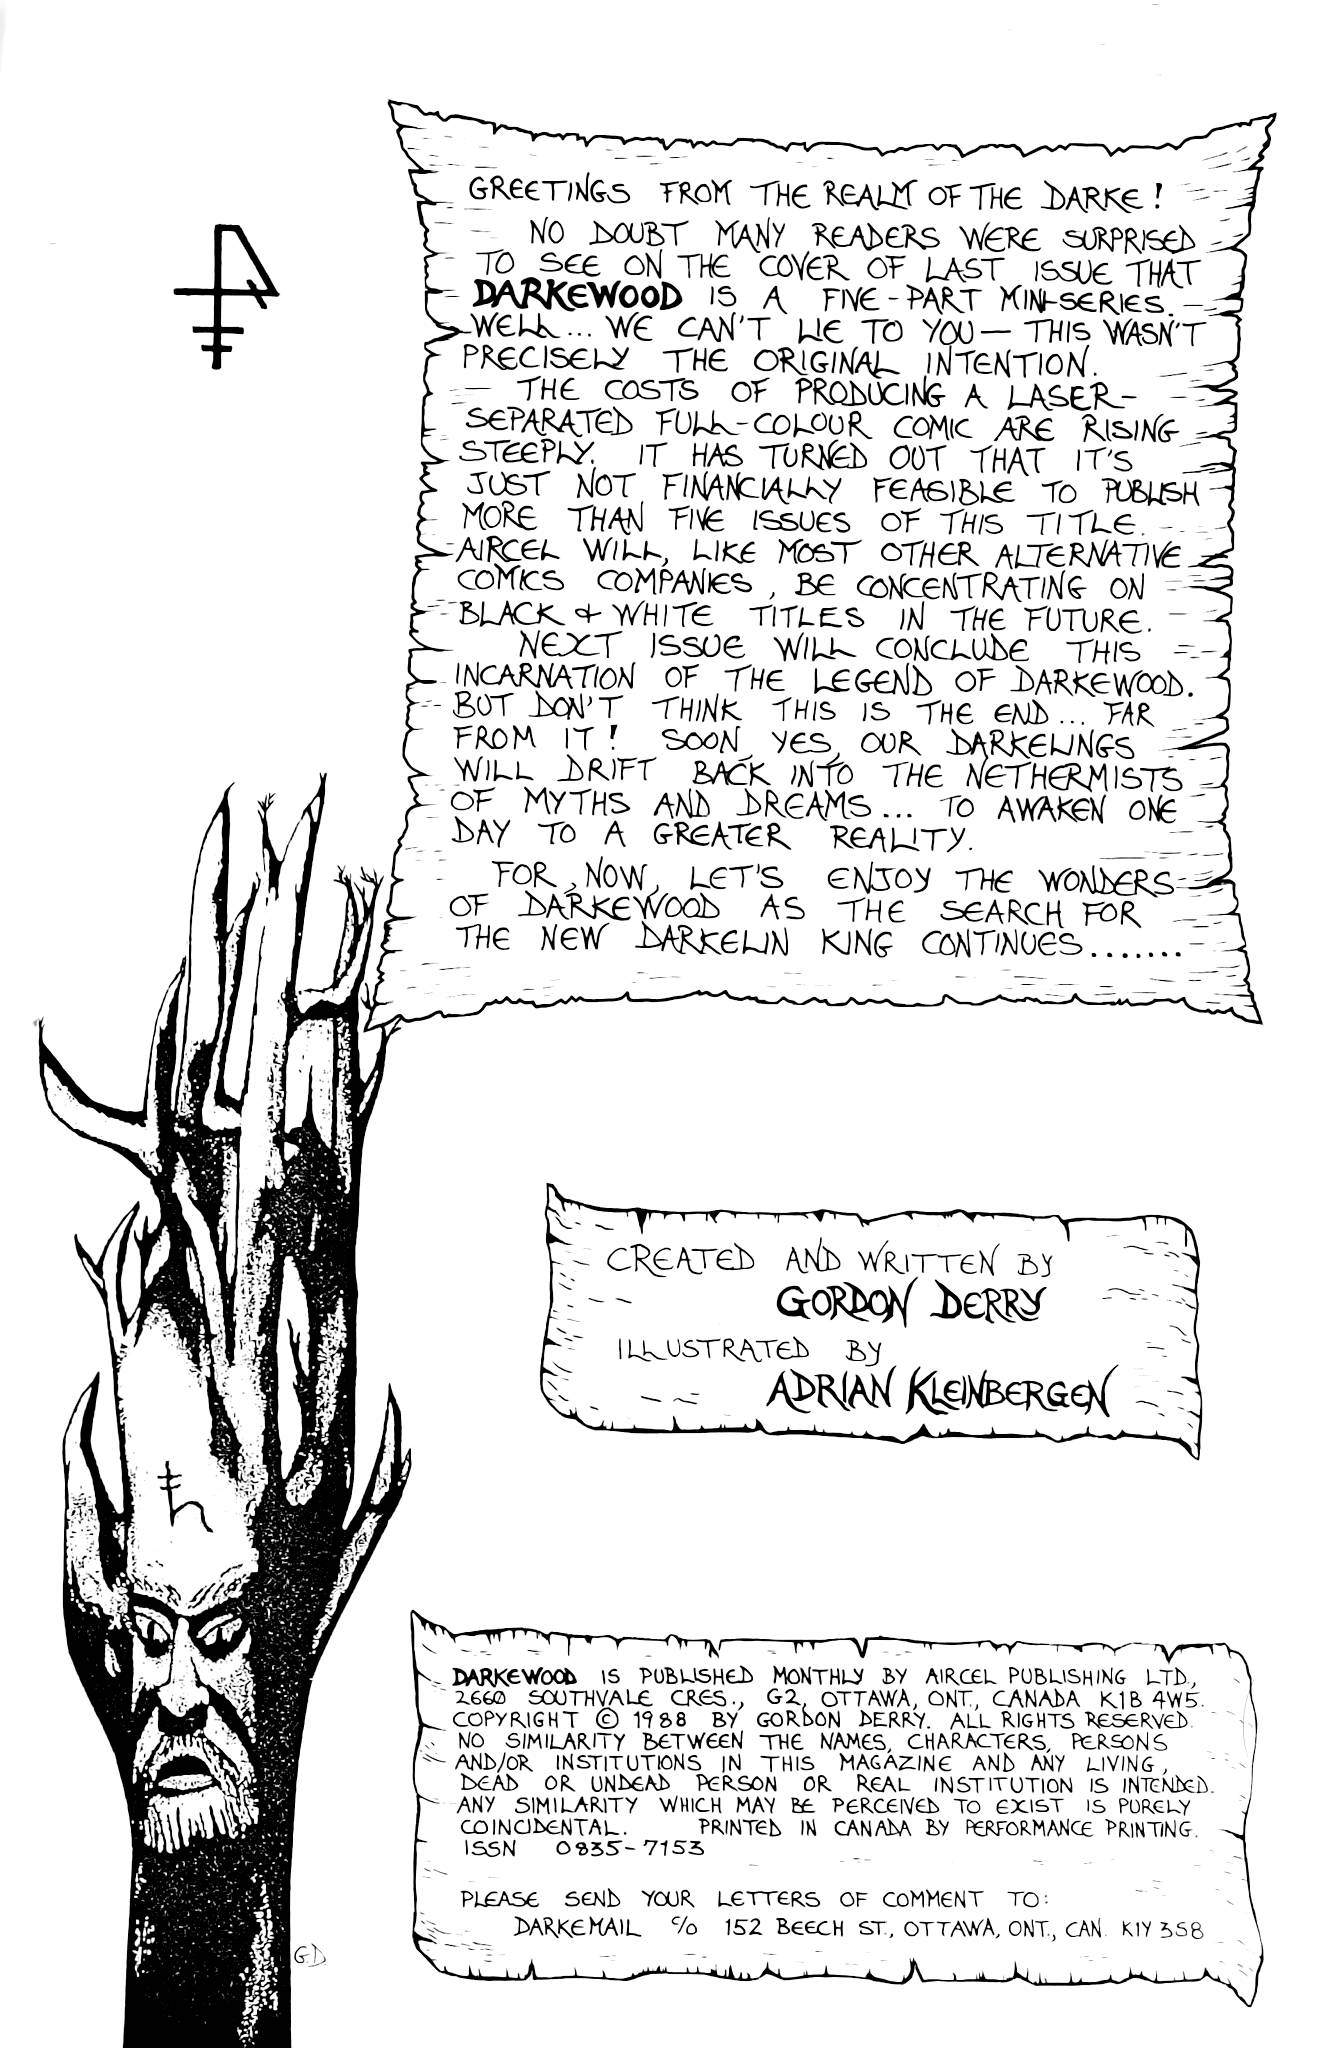 GREETINGS FROM THE REALM OF THE DARKE!
NO DOUBT MANY READERS WERE SURPRISED
TO SEE ON THE COVER OF LAST ISSUE THAT
DARKEWOOD IS A FIVE-PART MINI-SERIES.
WELL... WE CAN'T LIE TO YOU — THIS WASN'T
PRECISELY THE ORIGINAL INTENTION.
THE COSTS OF PRODUCING A LASER-
SEPARATED FULL-COLOUR COMIC ARE RISING
STEEPLY. IT HAS TURNED OUT THAT IT'S
JUST NOT FINANCIALLY FEASIBLE TO PUBLISH
MORE THAN FIVE ISSUES OF THIS TITLE.
AIRCEL WILL, LIKE MOST OTHER ALTERNATIVE
COMICS COMPANIES, BE CONCENTRATING ON
BLACK & WHITE TITLES IN THE FUTURE.
NEXT ISSUE WILL CONCLUDE THIS
INCARNATION OF THE LEGEND OF DARKEWOOD.
BUT DON'T THINK THIS IS THE END... FAR
FROM IT! SOON, YES, OUR DARKELINGS
WILL DRIFT BACK INTO THE NETHERMISTS
OF MYTHS AND DREAMS... TO AWAKEN ONE
DAY TO A GREATER REALITY.
FOR NOW, LET'S ENJOY THE WONDERS
OF DARKEWOOD AS THE SEARCH FOR
THE NEW DARKELIN KING CONTINUES.......
CREATED AND WRITTEN BY
GORDON DERRY
ILLUSTRATED BY
ADRIAN KLEINBERGEN
DARKEWOOD IS PUBLISHED MONTHLY BY AIRCEL PUBLISHING LTD.,
2660 SOUTHVALE CRES., G2, OTTAWA, ONT., CANADA K1B 4W5.
COPYRIGHT © 1988 BY GORDON DERRY. ALL RIGHTS RESERVED.
NO SIMILARITY BETWEEN THE NAMES, CHARACTERS, PERSONS
AND/OR INSTITUTIONS IN THIS MAGAZINE AND ANY LIVING,
DEAD OR UNDEAD PERSON OR REAL INSTITUTION IS INTENDED.
ANY SIMILARITY WHICH MAY BE PERCEIVED TO EXIST IS PURELY
COINCIDENTAL. PRINTED IN CANADA BY PERFORMANCE PRINTING.
ISSN 0835-7153
PLEASE SEND YOUR LETTERS OF COMMENT TO:
DARKEMAIL c/o 152 BEECH ST., OTTAWA, ONT., CAN. K1Y 3S8
G.D.